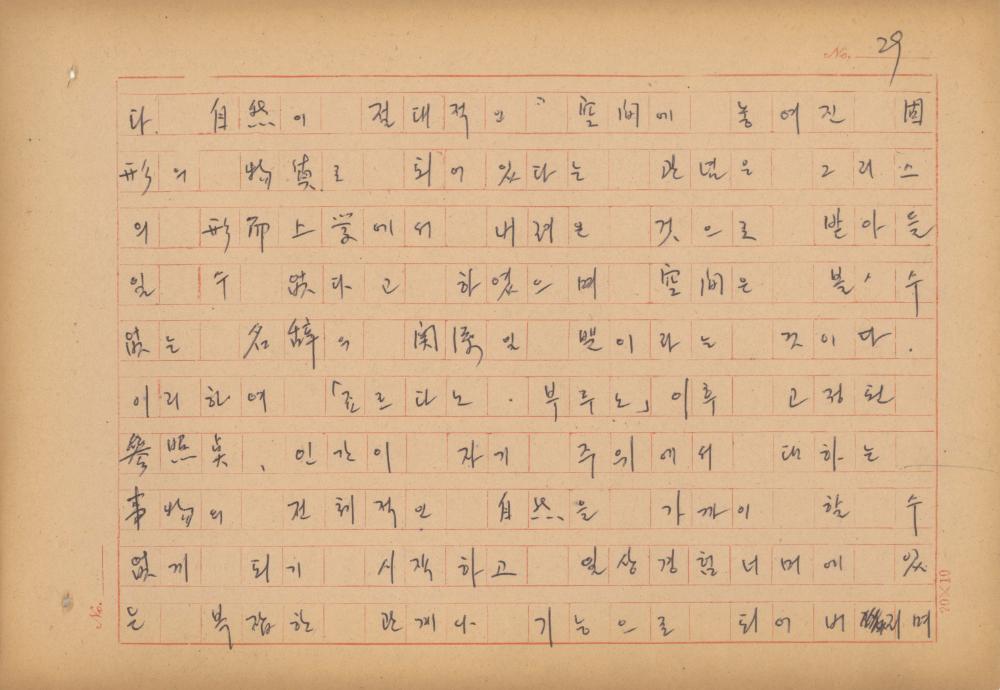 No. 29
다. 自然이 절대적인 空間에 놓여진 固
形의 物質로 되어 있다는 관념은 그리스
의 形而上学에서 내려온 것으로 받아들
일 수 없다고 하였으며 空間은 볼 수
없는 名辞의 関係일 뿐이라는 것이다.
이리하여 「죠르다노 · 부루노」이후 고정된
參照点, 인간이 자기 주위에서 대하는
事物의 전체적인 自然을 가까이 할 수
없게 되기 시작하고 일상경험 너머에 있
는 복잡한 관계나 기능으로 되어 버리며
No.
20×10